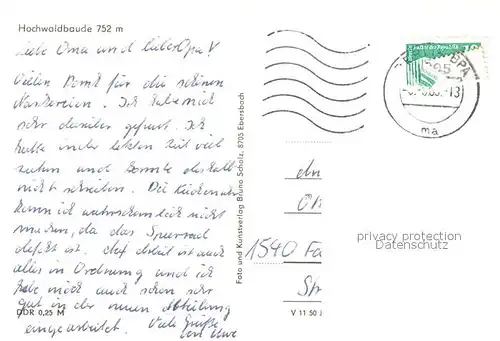 Hochwaldbaude 752 m
Liebe Oma und lieber Opa!
Vielen Dank für die schönen
Ich habe mich
sehr darüber gefreut. Ich
hatte in der letzten Zeit viel
zu tun und konnte deshalb
nicht schreiben. Die Küchenuhr
kann ich wahrscheinlich nicht
machen, da das
defekt ist. ist auch
alles in Ordnung und ich
habe mich auch schon sehr
gut in der neuen Abteilung
eingearbeitet. Viele Grüße
Uwe
DDR 0,25 M
Foto und Kunstverlag Bruno Scholz, 8705 Ebersbach
V 11 50
BPA
13
ma
An
1540 Fa
Str
privacy protection
Datenschutz